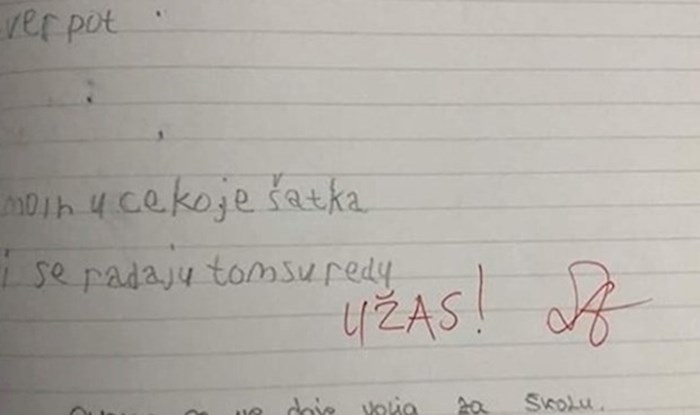 ver pot
moih u cekoje šatka
i se radaju tomsuredu
UŽAS!
za školu.